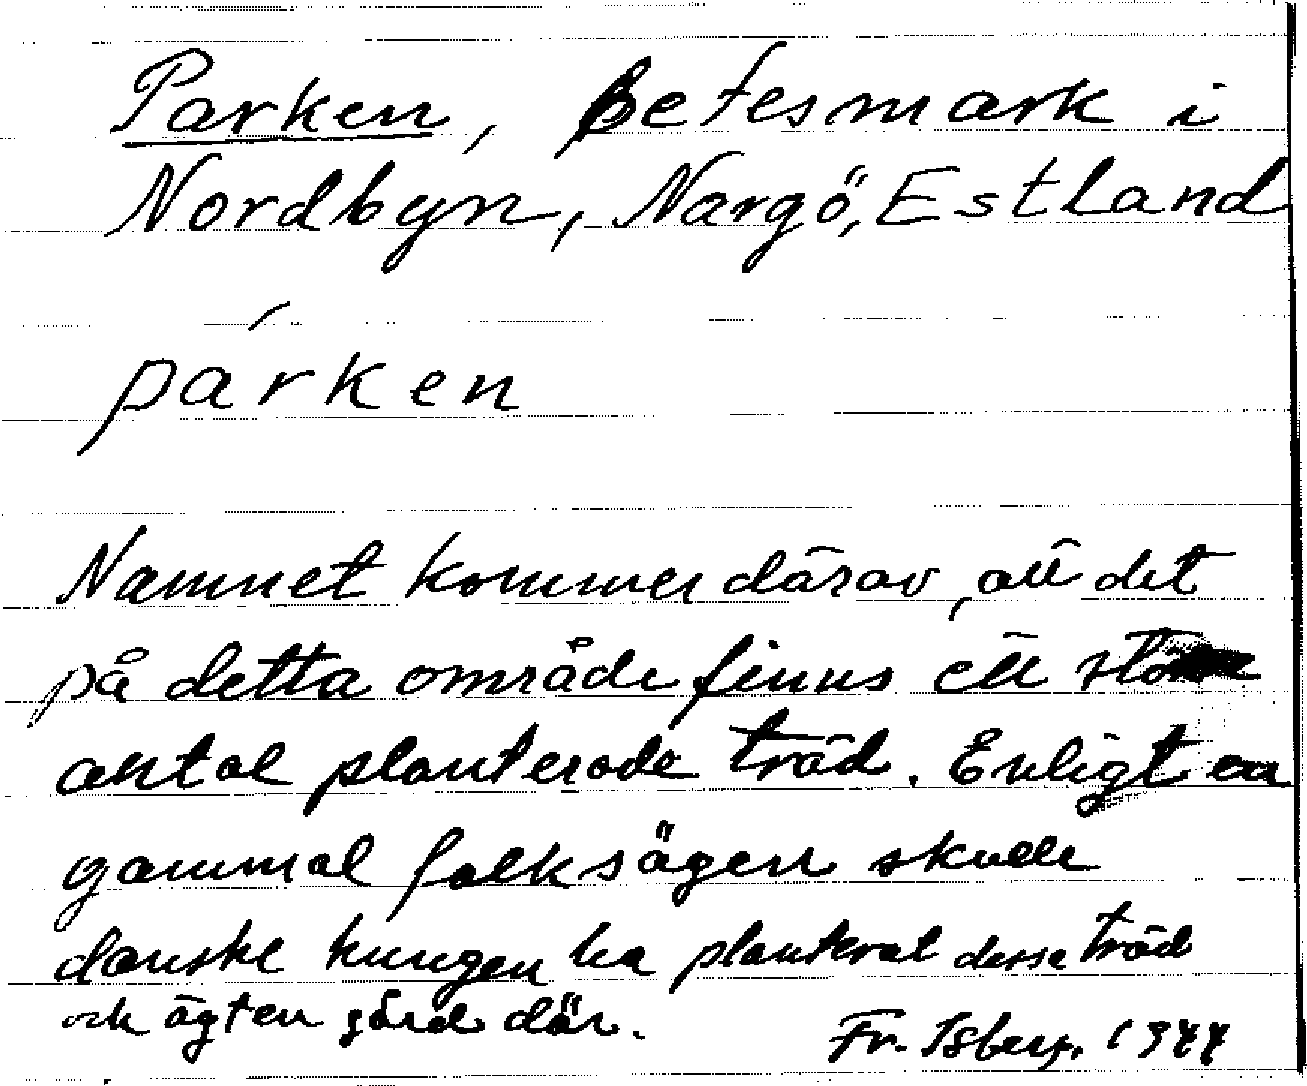 Parken, Betesmark i
Nordbyn, Nargö, Estland
párken
Namnet kommer därav, att det
på detta område finns ett stort
antal planterade träd. Enligt en
gammal folksägen skulle
danske kungen ha planterat dessa träd
och ägt en gård där.
Fr. Isberg, 1944